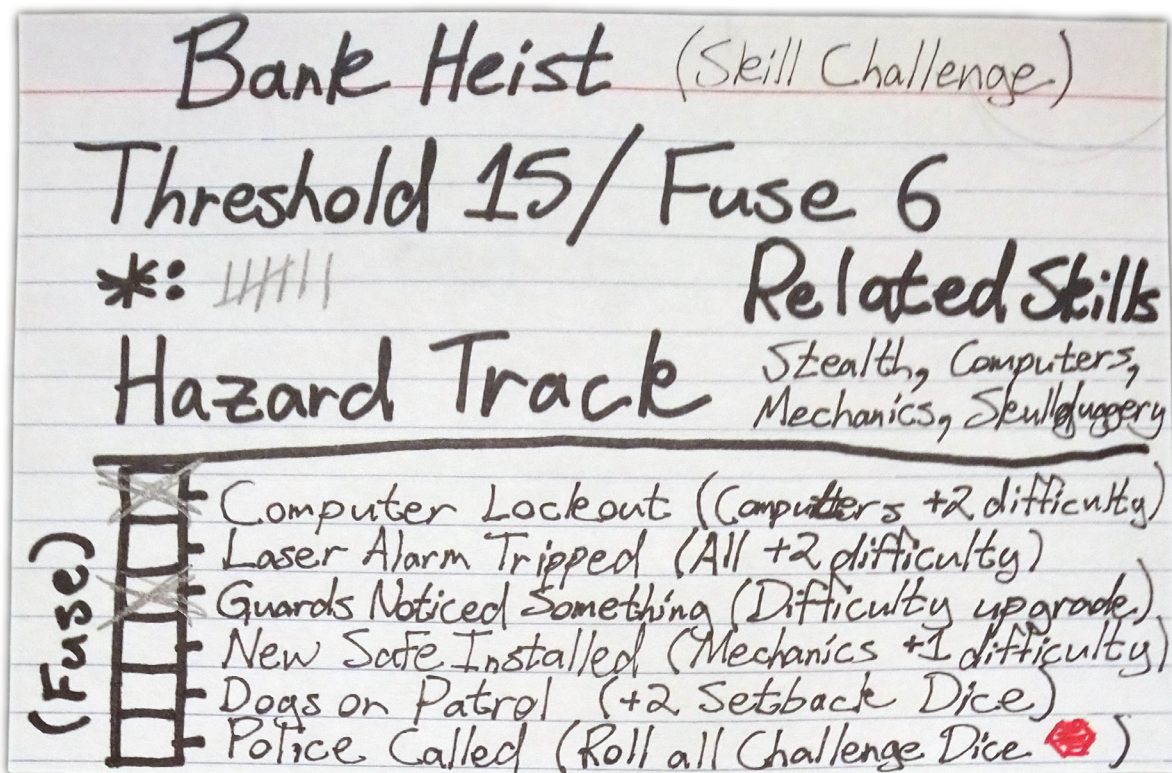 Bank Heist (Skill Challenge)
Threshold 15/ Fuse 6
*:
Related Skills
Stealth, Computers,
Mechanics, Skullduggery
Hazard Track
(Fuse)
Computer Lockout (Computers +2 difficulty)
Laser Alarm Tripped (All +2 difficulty)
Guards Noticed Something (Difficulty upgrade)
New Safe Installed (Mechanics +1 difficulty)
Dogs on Patrol (+2 Setback Dice)
Police Called (Roll all Challenge Dice )